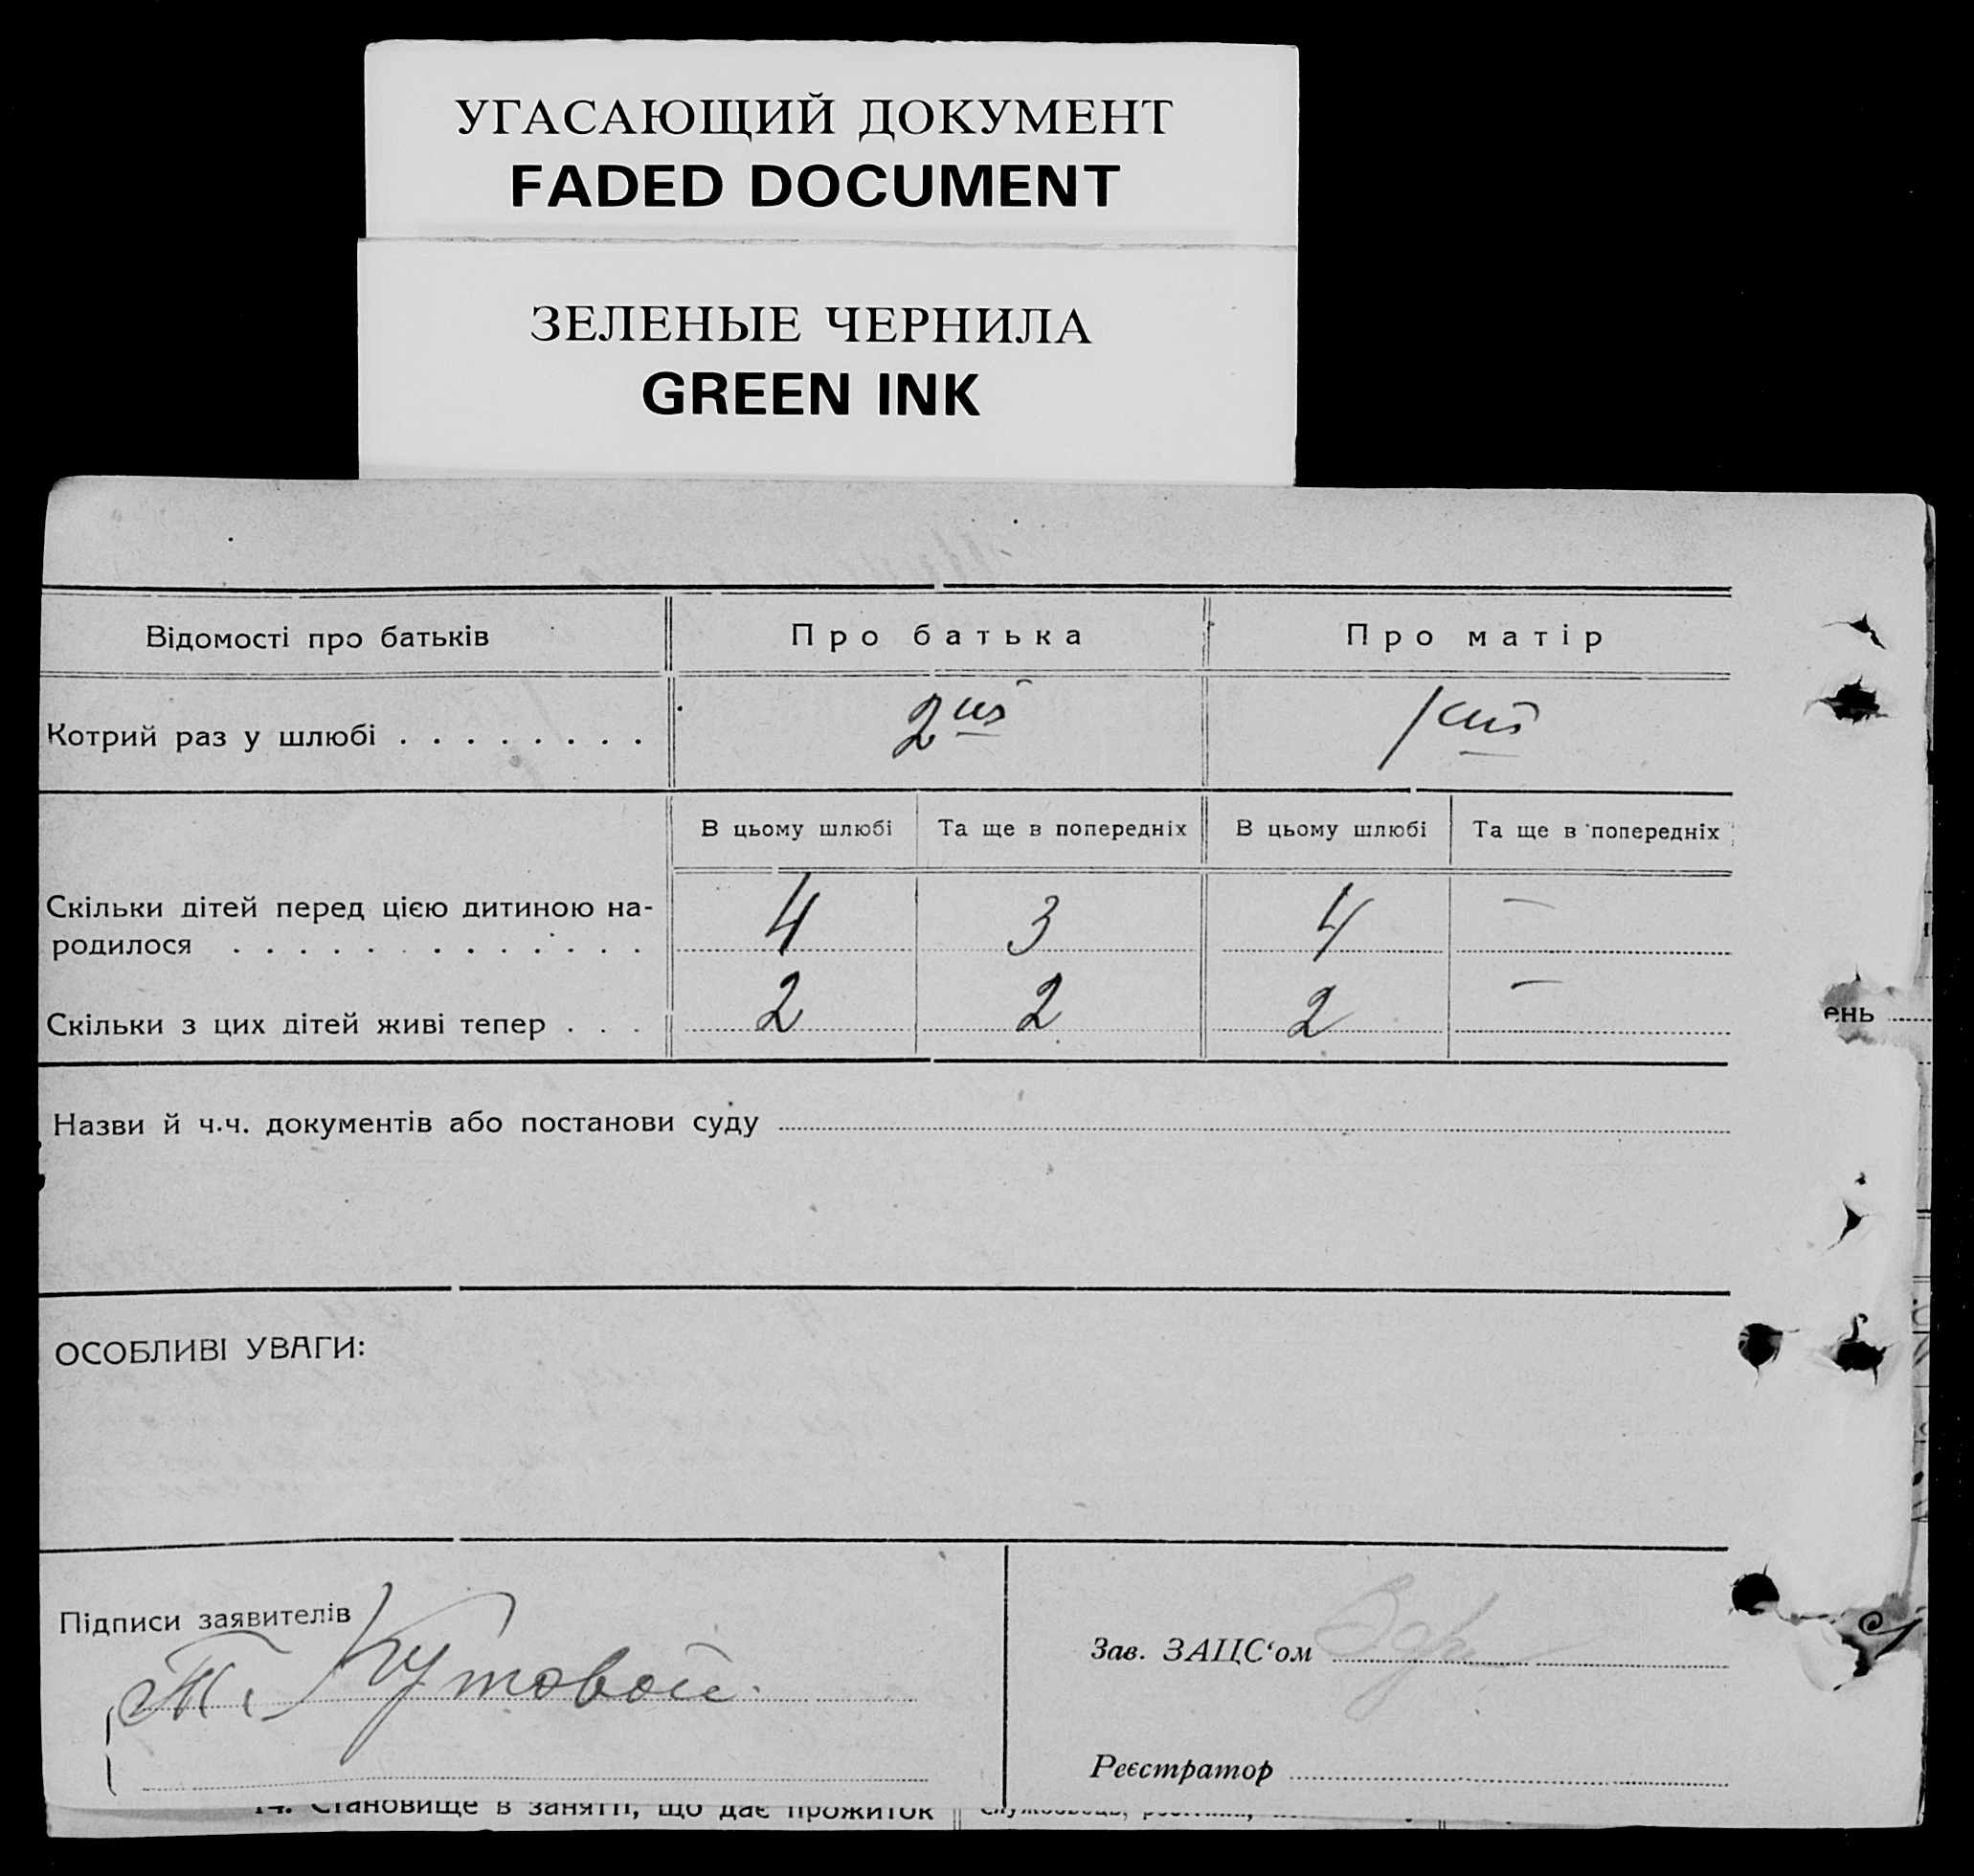 УГАСАЮЩИЙ ДОКУМЕНТ
FADED DOCUMENT
ЗЕЛЕНЫЕ ЧЕРНИЛА
GREEN INK
Відомості про батьків Про батька Про матір
Котрий раз у шлюбі . . . . . . . . 2ий 1ший
В цьому шлюбі Та ще в попередніх В цьому шлюбі Та ще в попередніх
Скільки дітей перед цією дитиною на-
родилося . . . . . . . . . . . . . 4 3 4 —
Скільки з цих дітей живі тепер . . . 2 2 2 —
ень
Назви й ч.ч. документів або постанови суду
ОСОБЛИВІ УВАГИ:
Підписи заявителів
Т. Кутовой.
Зав. ЗАЦС‘ом
Реєстратор
14. Становище в занятті, що дає прожиток